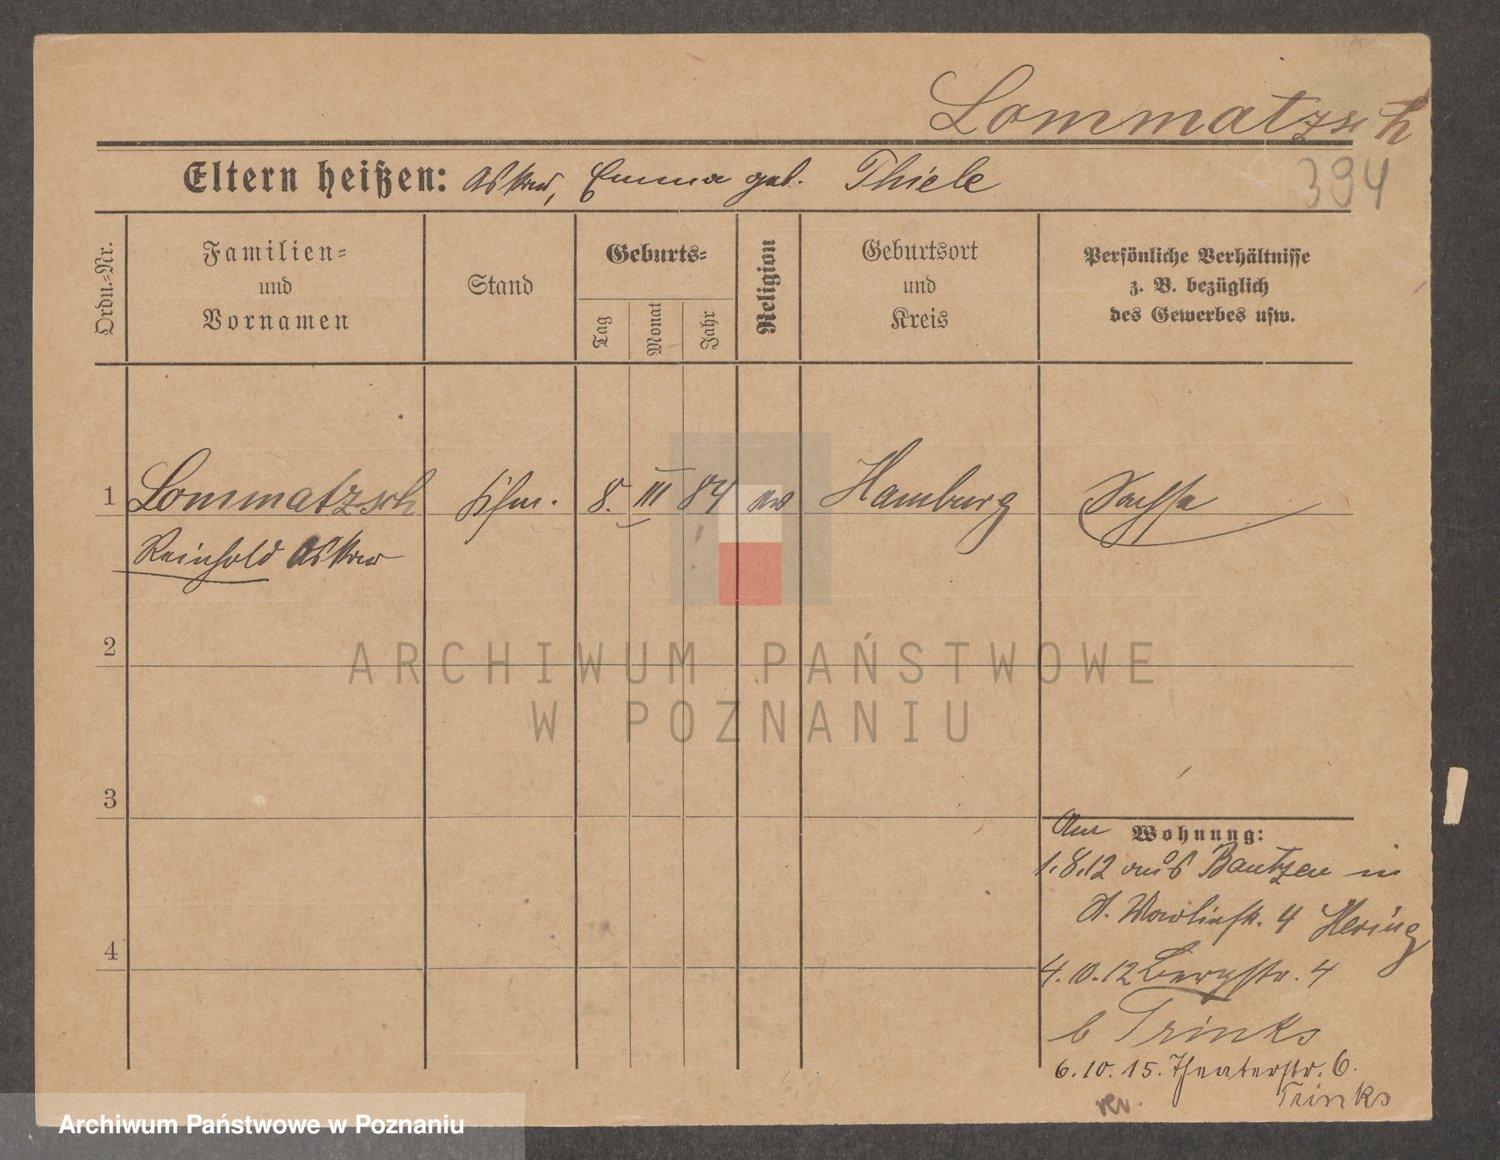 Lommatzsch
394
Eltern heißen: Oskar, Emma geb. Thiele
Ordn.-Nr.
Familien-
und
Vornamen
Stand
Geburts-
Tag
Monat
Jahr
Religion
Geburtsort
und
Kreis
Persönliche Verhältnisse
z. B. bezüglich
des Gewerbes usw.
1 Lommatzsch Kfm. 8. III 84 ev Hamburg Sachse
Reinhold Oskar
2
3
4
ARCHIWUM PAŃSTWOWE
W POZNANIU
Am Wohnung:
1.8.12 aus Bautzen in
4 Hering
4.10.12 Bergstr. 4
b Trinks
6.10.15. Theaterstr. 6.
Trinks
Archiwum Państwowe w Poznaniu